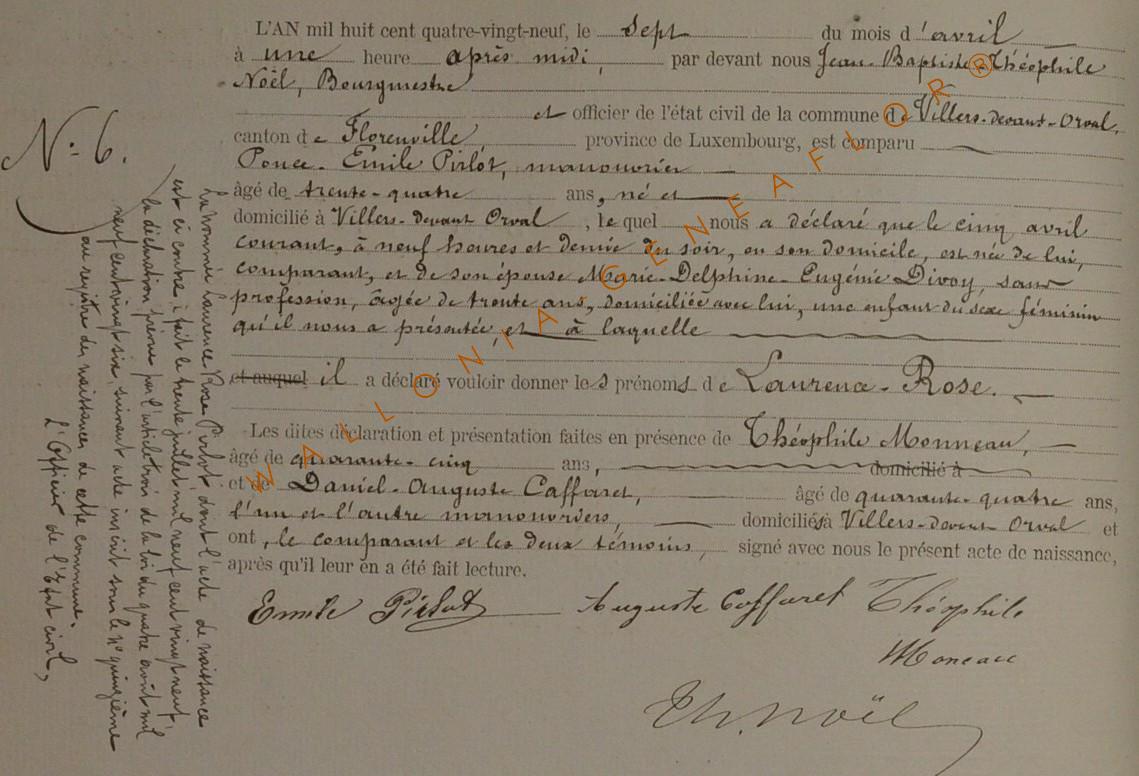 L'AN mil huit cent quatre-vingt-neuf, le sept du mois d'avril
à une heure après midi, par devant nous Jean-Baptiste-Théophile
Noël, Bourgmestre
et officier de l'état civil de la commune de Villers-devant-Orval,
canton de Florenville province de Luxembourg, est comparu
Ponce-Emile Pirlot, manouvrier
âgé de trente-quatre ans, né et
domicilié à Villers-devant Orval, lequel nous a déclaré que le cinq avril
courant, à neuf heures et demie du soir, en son domicile, est née de lui,
comparant, et de son épouse Marie-Delphine-Eugénie Divoy, sans
profession, âgée de trente ans, domiciliée avec lui, une enfant du sexe féminin
qu'il nous a présentée, et à laquelle
et auquel il a déclaré vouloir donner les prénoms de Laurence-Rose.
Les dites déclaration et présentation faites en présence de Théophile Monneau,
âgé de quarante-cinq ans, domicilié à
et de Daniel-Auguste Caffaret, âgé de quarante-quatre ans,
l'un et l'autre manouvriers, domiciliés à Villers-devant Orval et
ont, le comparant et les deux témoins, signé avec nous le présent acte de naissance,
après qu'il leur en a été fait lecture.
Emile Pirlot Auguste Caffaret Théophile
Moneau
Th. Noël
N° 6.
La nommée Laurence Rose Pirlot dont l'acte de naissance
est ci contre, a fait le trente juillet mil neuf cent vingt neuf,
la déclaration prévue par l'article trois de la loi du quatre août mil
neuf cent vingt six, suivant acte inscrit sous le n° quinzième
au registre des naissances de cette commune.
L'Officier de l'Etat civil,
WALLONIA GENEAFLORR